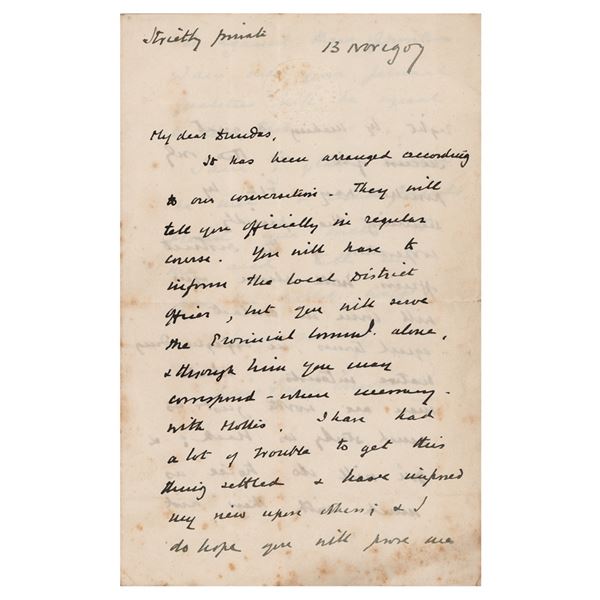 Strictly private
13 Nov 1907
My dear Dundas,
It has been arranged according
to our conversation. They will
tell you officially in regular
course. You will have to
inform the Local District
Officer, but you will serve
the Provincial Comml. alone,
& through him you may
correspond - where necessary -
with Hollis. I have had
a lot of trouble to get this
thing settled & have imposed
my view upon others; & I
do hope you will prove me